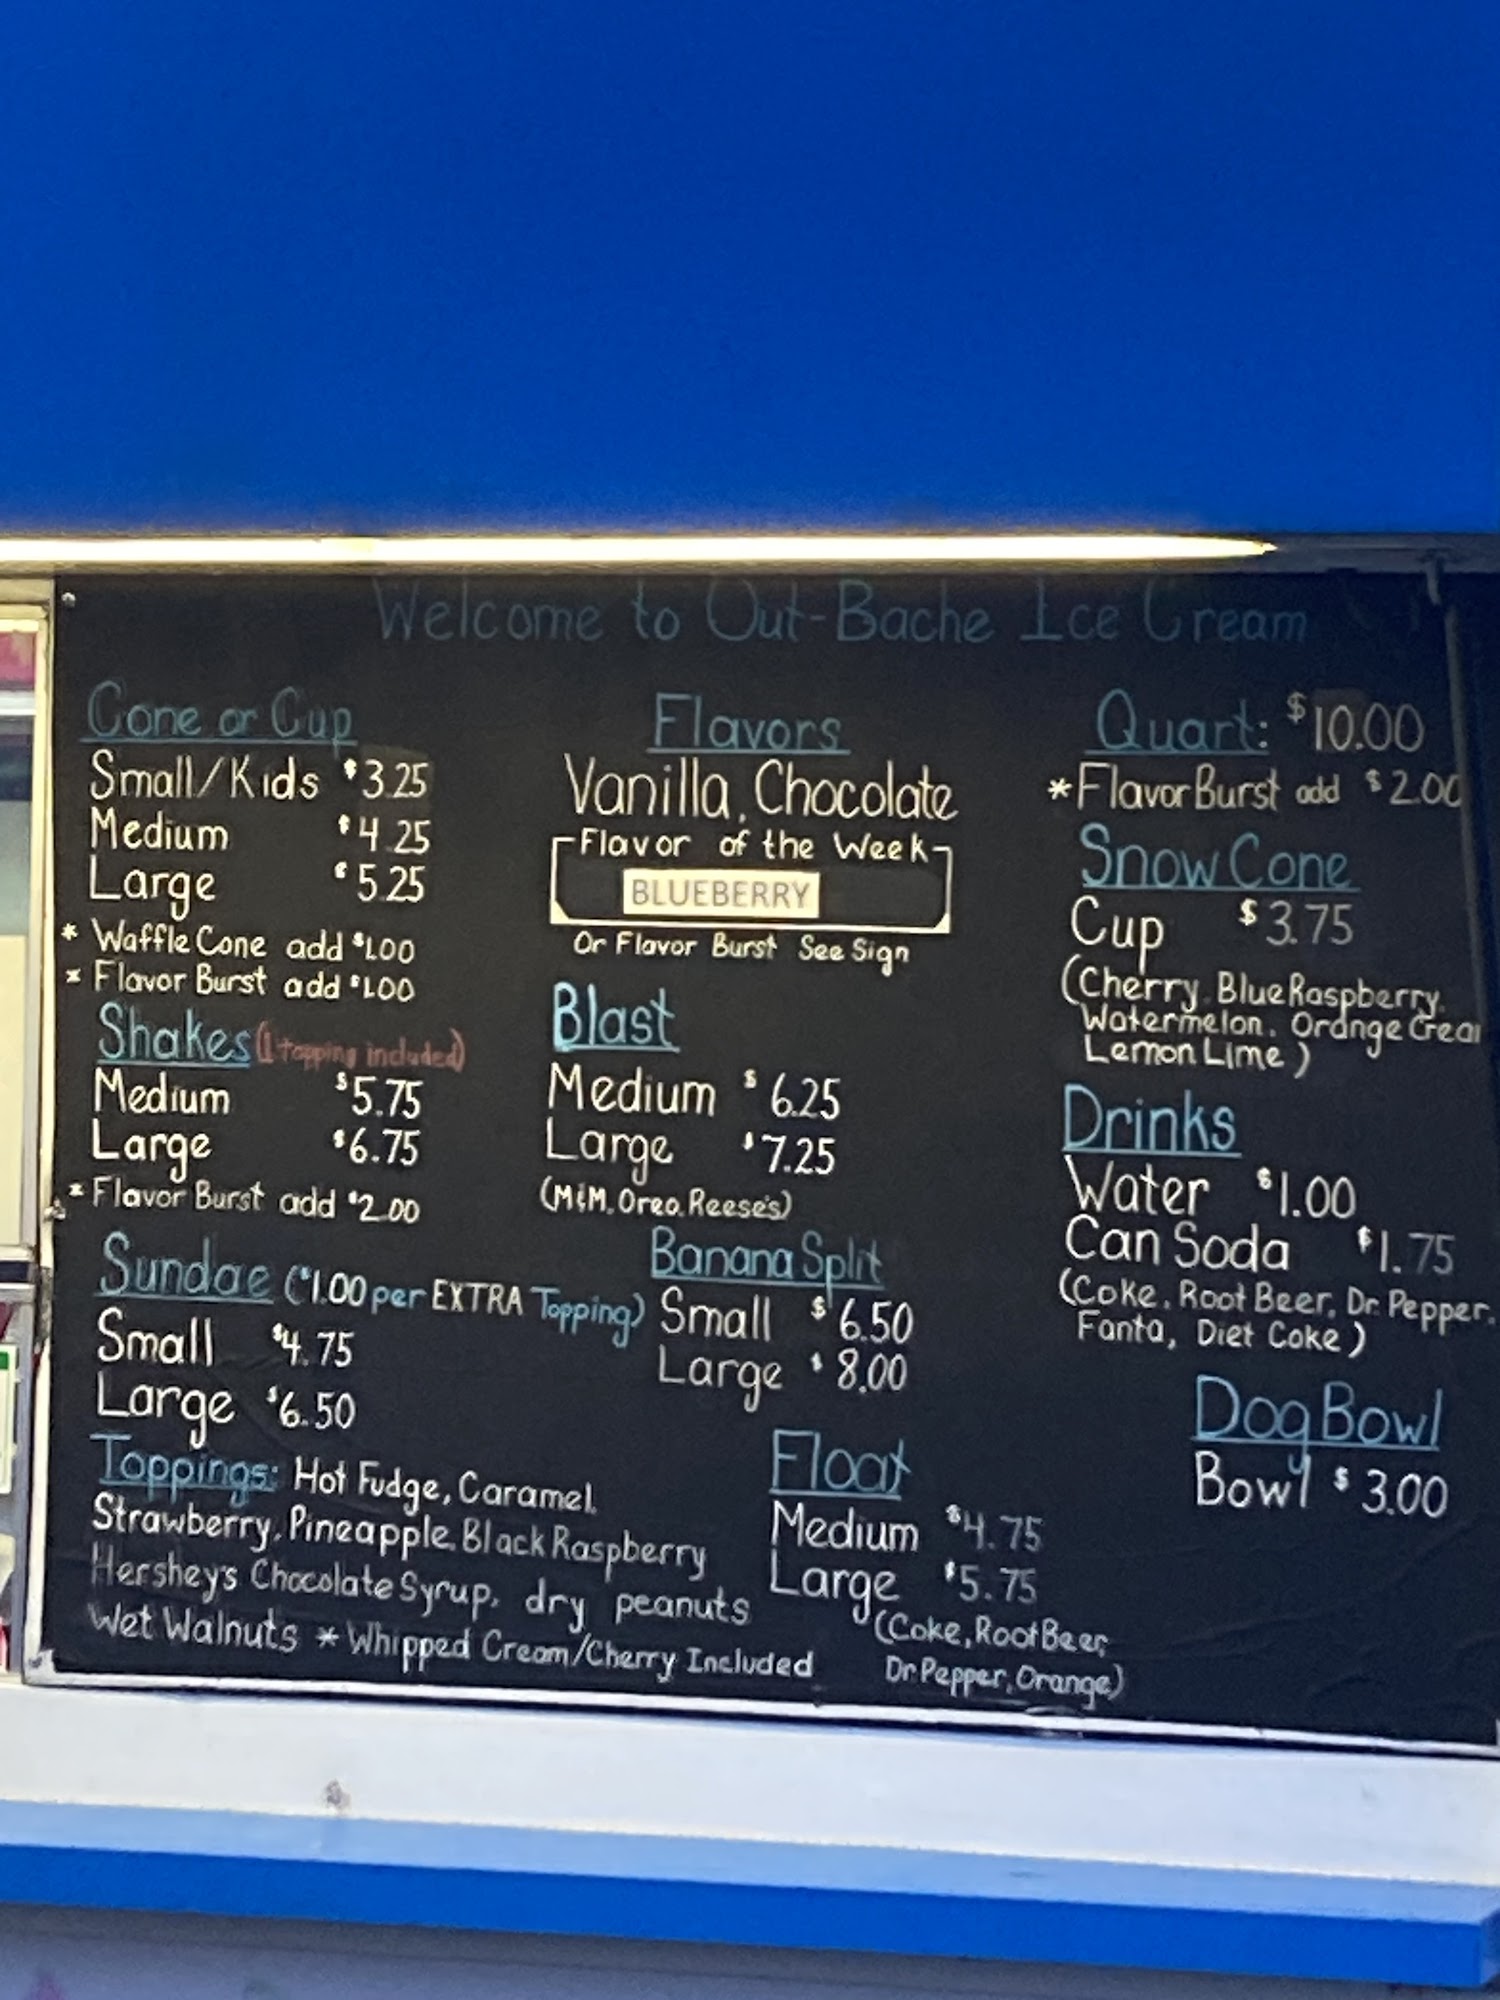 Welcome to Out-Bache Ice Cream
Cone or Cup
Small/Kids $3.25
Medium $4.25
Large $5.25
* Waffle Cone add $1.00
* Flavor Burst add $1.00
Shakes (1 topping included)
Medium $5.75
Large $6.75
* Flavor Burst add $2.00
Sundae ($1.00 per EXTRA Topping)
Small $4.75
Large $6.50
Toppings: Hot Fudge, Caramel,
Strawberry, Pineapple, Black Raspberry
Hershey's Chocolate Syrup, dry peanuts
Wet Walnuts * Whipped Cream/Cherry Included
Flavors
Vanilla, Chocolate
Flavor of the Week
BLUEBERRY
Or Flavor Burst See Sign
Blast
Medium $6.25
Large $7.25
(M&M, Oreo, Reese's)
Banana Split
Small $6.50
Large $8.00
Float
Medium $4.75
Large $5.75
(Coke, Root Beer,
Dr. Pepper, Orange)
Quart: $10.00
* Flavor Burst add $2.00
Snow Cone
Cup $3.75
(Cherry, Blue Raspberry,
Watermelon, Orange
Lemon Lime)
Drinks
Water $1.00
Can Soda $1.75
(Coke, Root Beer, Dr. Pepper,
Fanta, Diet Coke)
Dog Bowl
Bowl $3.00